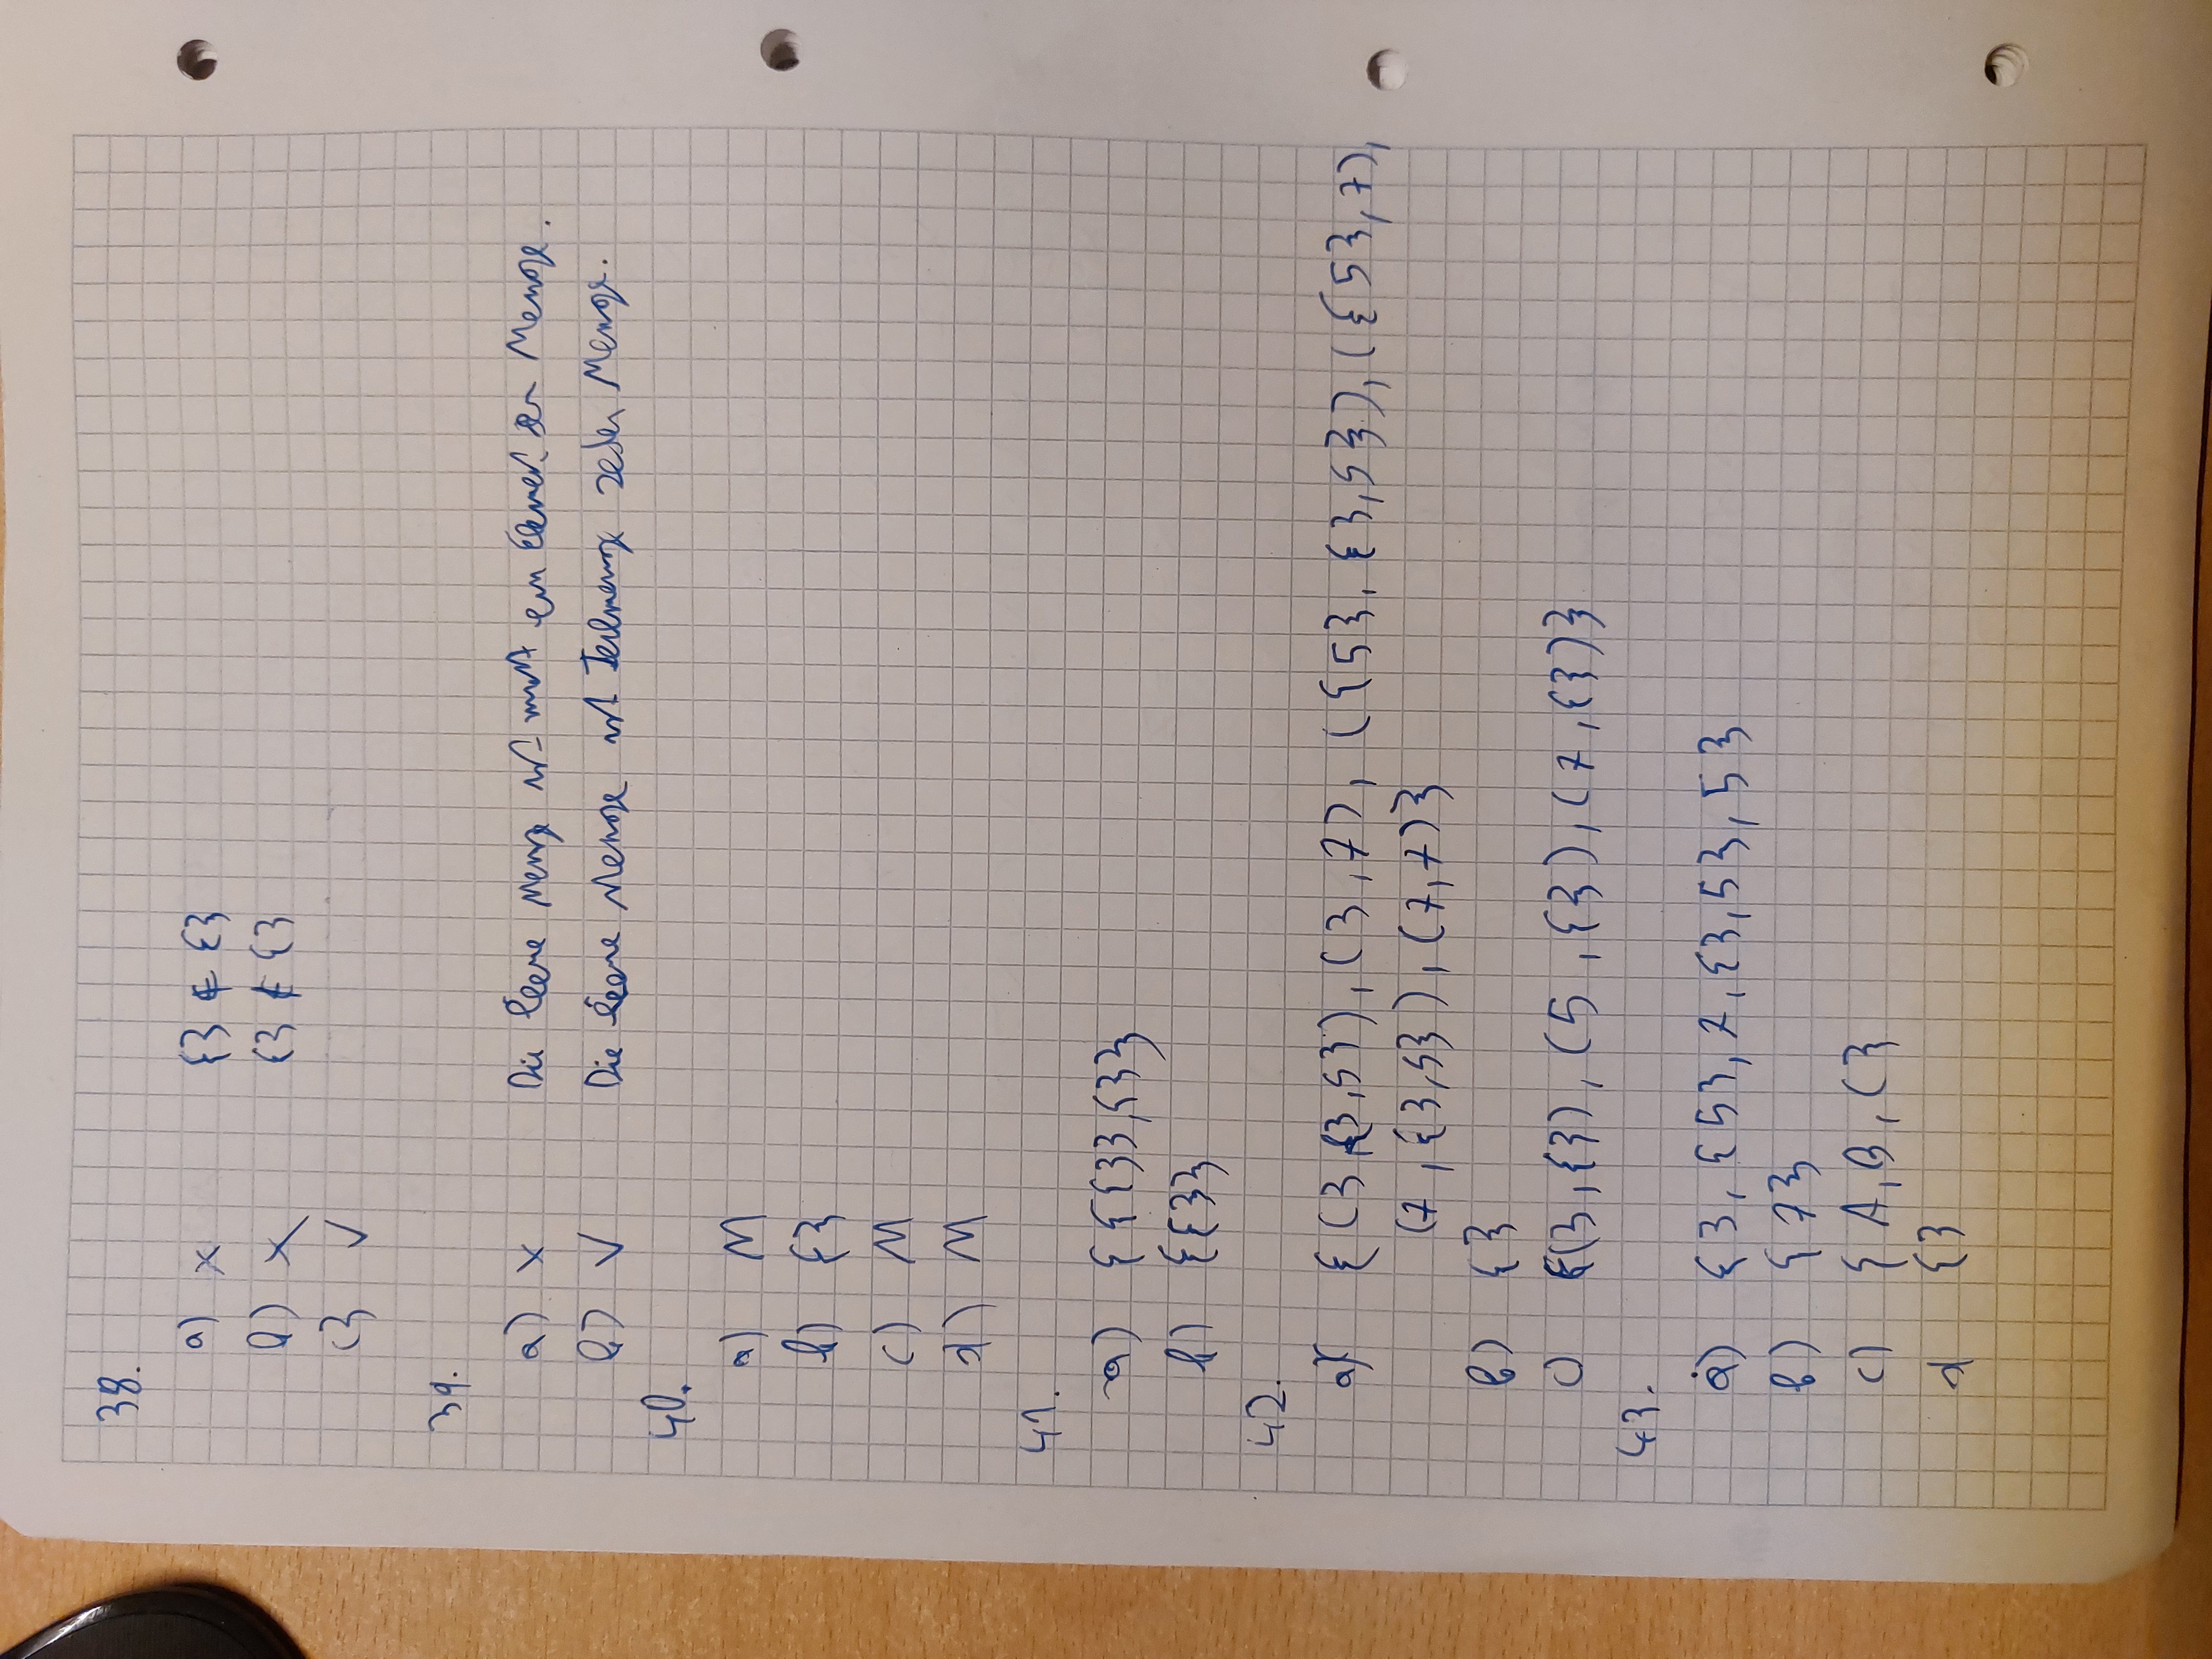 38.
a) × {} ∉ {}
b) × {} ∉ {}
c) ✓
39.
a) × Die leere Menge ist nicht ein Element der Menge.
b) ✓ Die leere Menge ist Teilmenge jeder Menge.
40.
a) M
b) {}
c) M
d) M
41.
a) {{{}},{}}
b) {{}}
42.
a) {(3,{3,5}),(3,7),({5},{3,5}),({5},7),
(7,{3,5}),(7,7)}
b) {}
c) {(3,{}),(5,{}),(7,{})}
43.
a) {3,{5},7,{3,5},5}
b) {7}
c) {A,B,C}
d {}